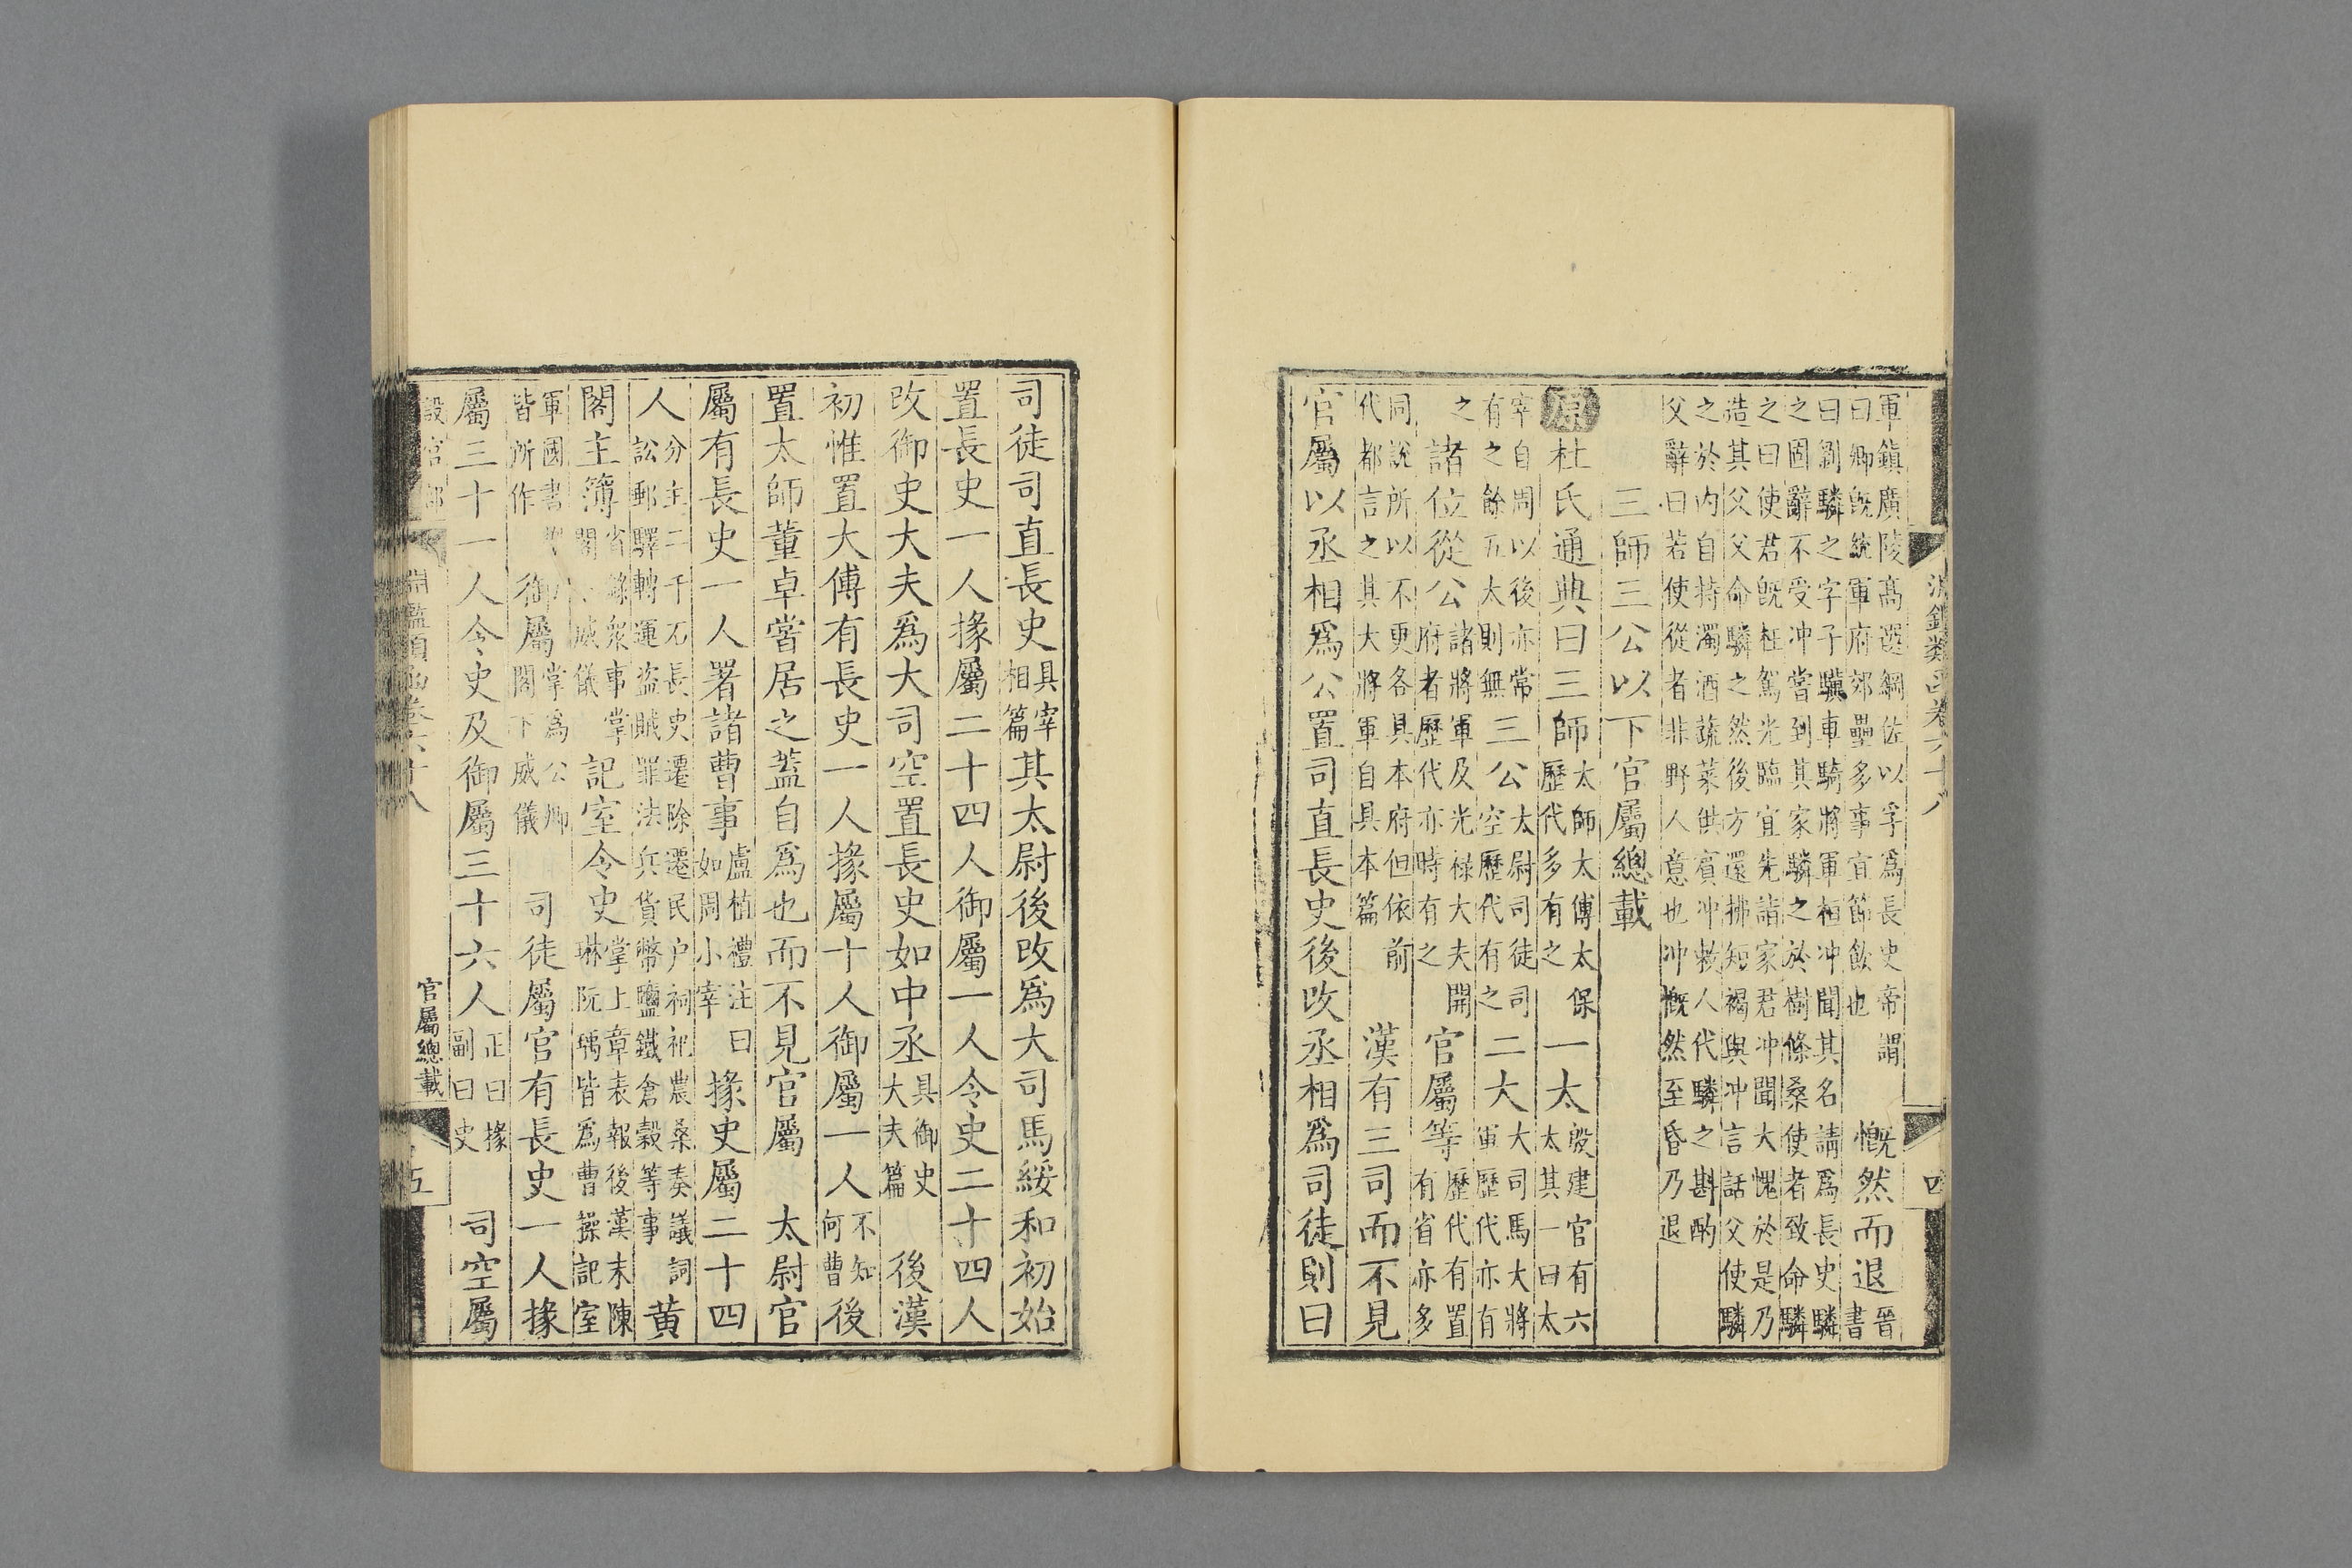 軍鎮廣陵高選綱佐以孚爲長史帝謂
曰卿旣統軍府郊壘多事宜節飲也
慨然而退
晉
書
曰劉驎之字子驥車騎將軍桓冲聞其名請爲長史驎
之固辭不受冲嘗到其家驎之於樹條桑使者致命驎
之曰使君旣枉駕光臨宜先詣家君冲聞大愧於是乃
造其父父命驎之然後方還拂短褐與冲言話父使驎
之於内自持濁酒蔬菜供賓冲敕人代驎之斟酌
父辭曰若使從者非野人意也冲慨然至昏乃退
三師三公以下官屬總載
原杜氏通典曰三師
太師太傅太保
歷代多有之
一太
殷建官有六
太其一曰太
宰自周以後亦常
有之餘五太則無
三公
太尉司徒司
空歷代有之
二大
大司馬大將
軍歷代亦有
之
諸位從公
諸將軍及光祿大夫開
府者歷代亦時有之
官屬等
歷代有置
有省亦多
同說所以不更各具本府但依前
代都言之其大將軍自具本篇
漢有三司而不見
官屬以丞相爲公置司直長史後改丞相爲司徒則曰
淵鑑類函卷六十八
四
司徒司直長史
具宰
相篇
其太尉後改爲大司馬綏和初始
置長史一人掾屬二十四人御屬一人令史二十四人
改御史大夫爲大司空置長史如中丞
具御史
大夫篇
後漢
初惟置大傅有長史一人掾屬十人御屬一人
不知
何曹
後
置太師董卓嘗居之蓋自爲也而不見官屬
太尉官
屬有長史一人署諸曹事
盧植禮注曰
如周小宰
掾史屬二十四
人
分主二千石長史遷除遷民户祠祀農桑奏議詞
訟郵驛轉運盜賊罪法兵貨幣鹽鐵倉穀等事
黄
閣主簿
省錄衆事掌
閣下威儀
記室令史
掌上章表報後漢末陳
琳阮瑀皆爲曹操記室
軍國書
皆所作
御屬
掌爲公卿
閣下威儀
司徒屬官有長史一人掾
屬三十一人令史及御屬三十六人
正曰掾
副曰史
司空屬
淵鑑類函卷六十八
官屬總載
五
設官部